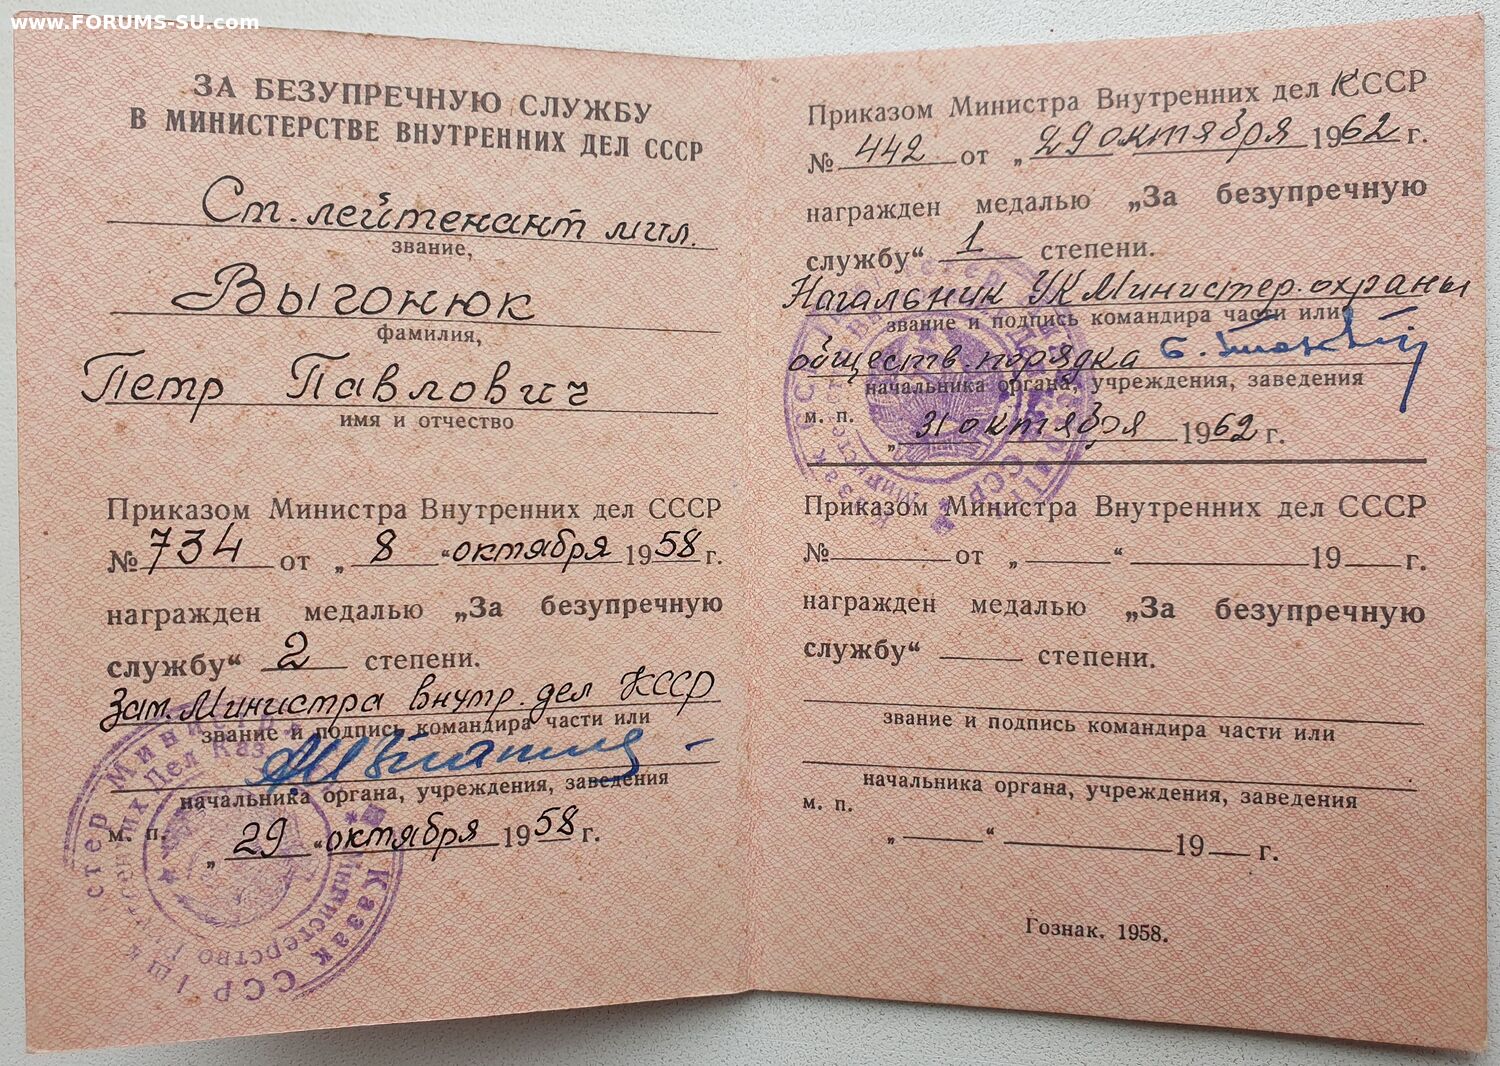 www.FORUMS-SU.com
ЗА БЕЗУПРЕЧНУЮ СЛУЖБУ
В МИНИСТЕРСТВЕ ВНУТРЕННИХ ДЕЛ СССР
Ст. лейтенант мил.
звание,
Выгонюк
фамилия,
Петр Павлович
имя и отчество
Приказом Министра Внутренних дел СССР
№ 734 от „ 8 “ октября 1958 г.
награжден медалью „За безупречную
службу“ 2 степени.
Зам. Министра внутр. дел КССР
звание и подпись командира части или
начальника органа, учреждения, заведения
м. п.
„ 29 “ октября 1958 г.
Приказом Министра Внутренних дел КССР
№ 442 от „ 29 октября 1962 г.
награжден медалью „За безупречную
службу“ 1 степени.
Начальник УК Министер. охраны
звание и подпись командира части или
обществ. порядка
начальника органа, учреждения, заведения
м. п.
„ 31 октября 1962 г.
Приказом Министра Внутренних дел СССР
№ от „ “ 19 г.
награжден медалью „За безупречную
службу“ степени.
звание и подпись командира части или
начальника органа, учреждения, заведения
м. п.
„ “ 19 г.
Гознак. 1958.